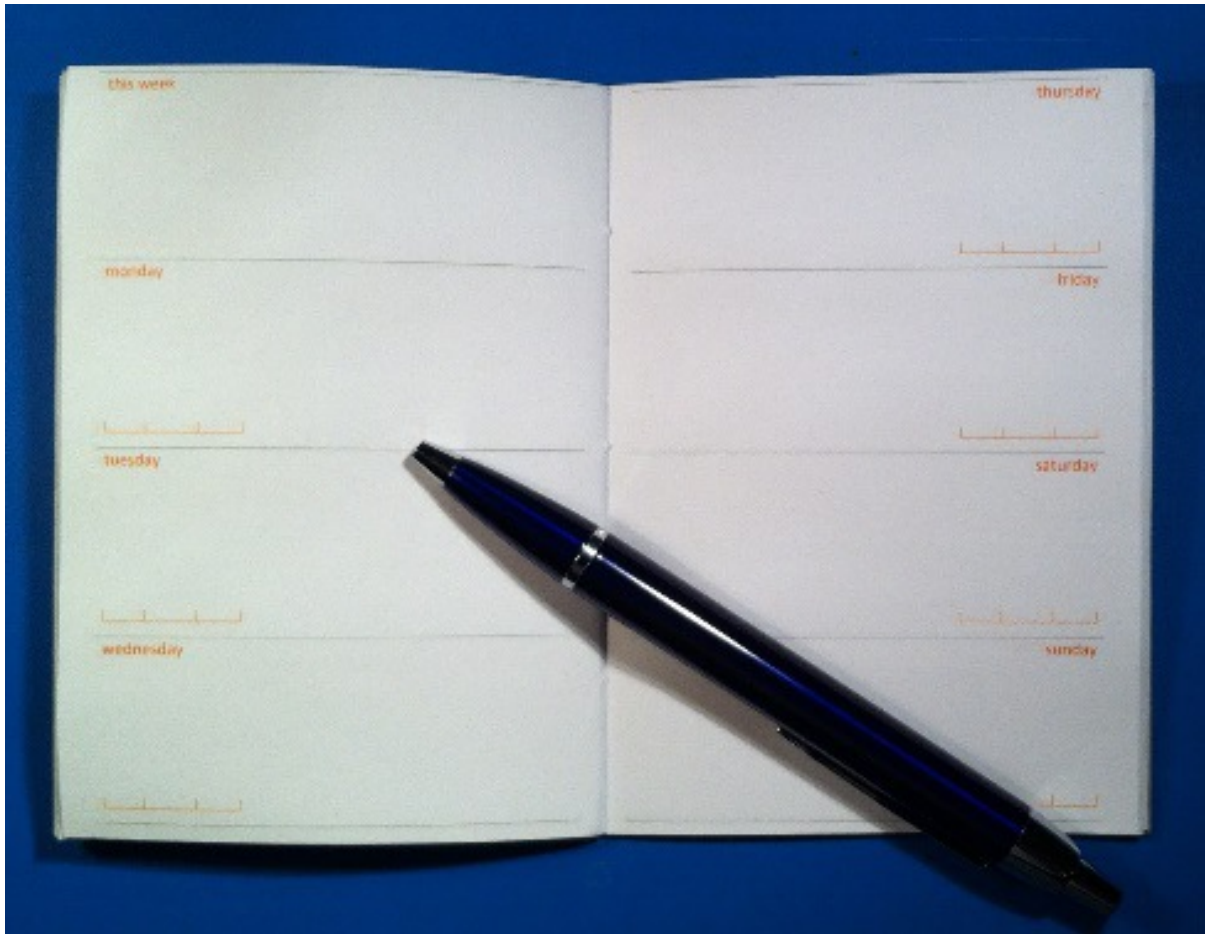 this week
monday
tuesday
wednesday
thursday
friday
saturday
sunday